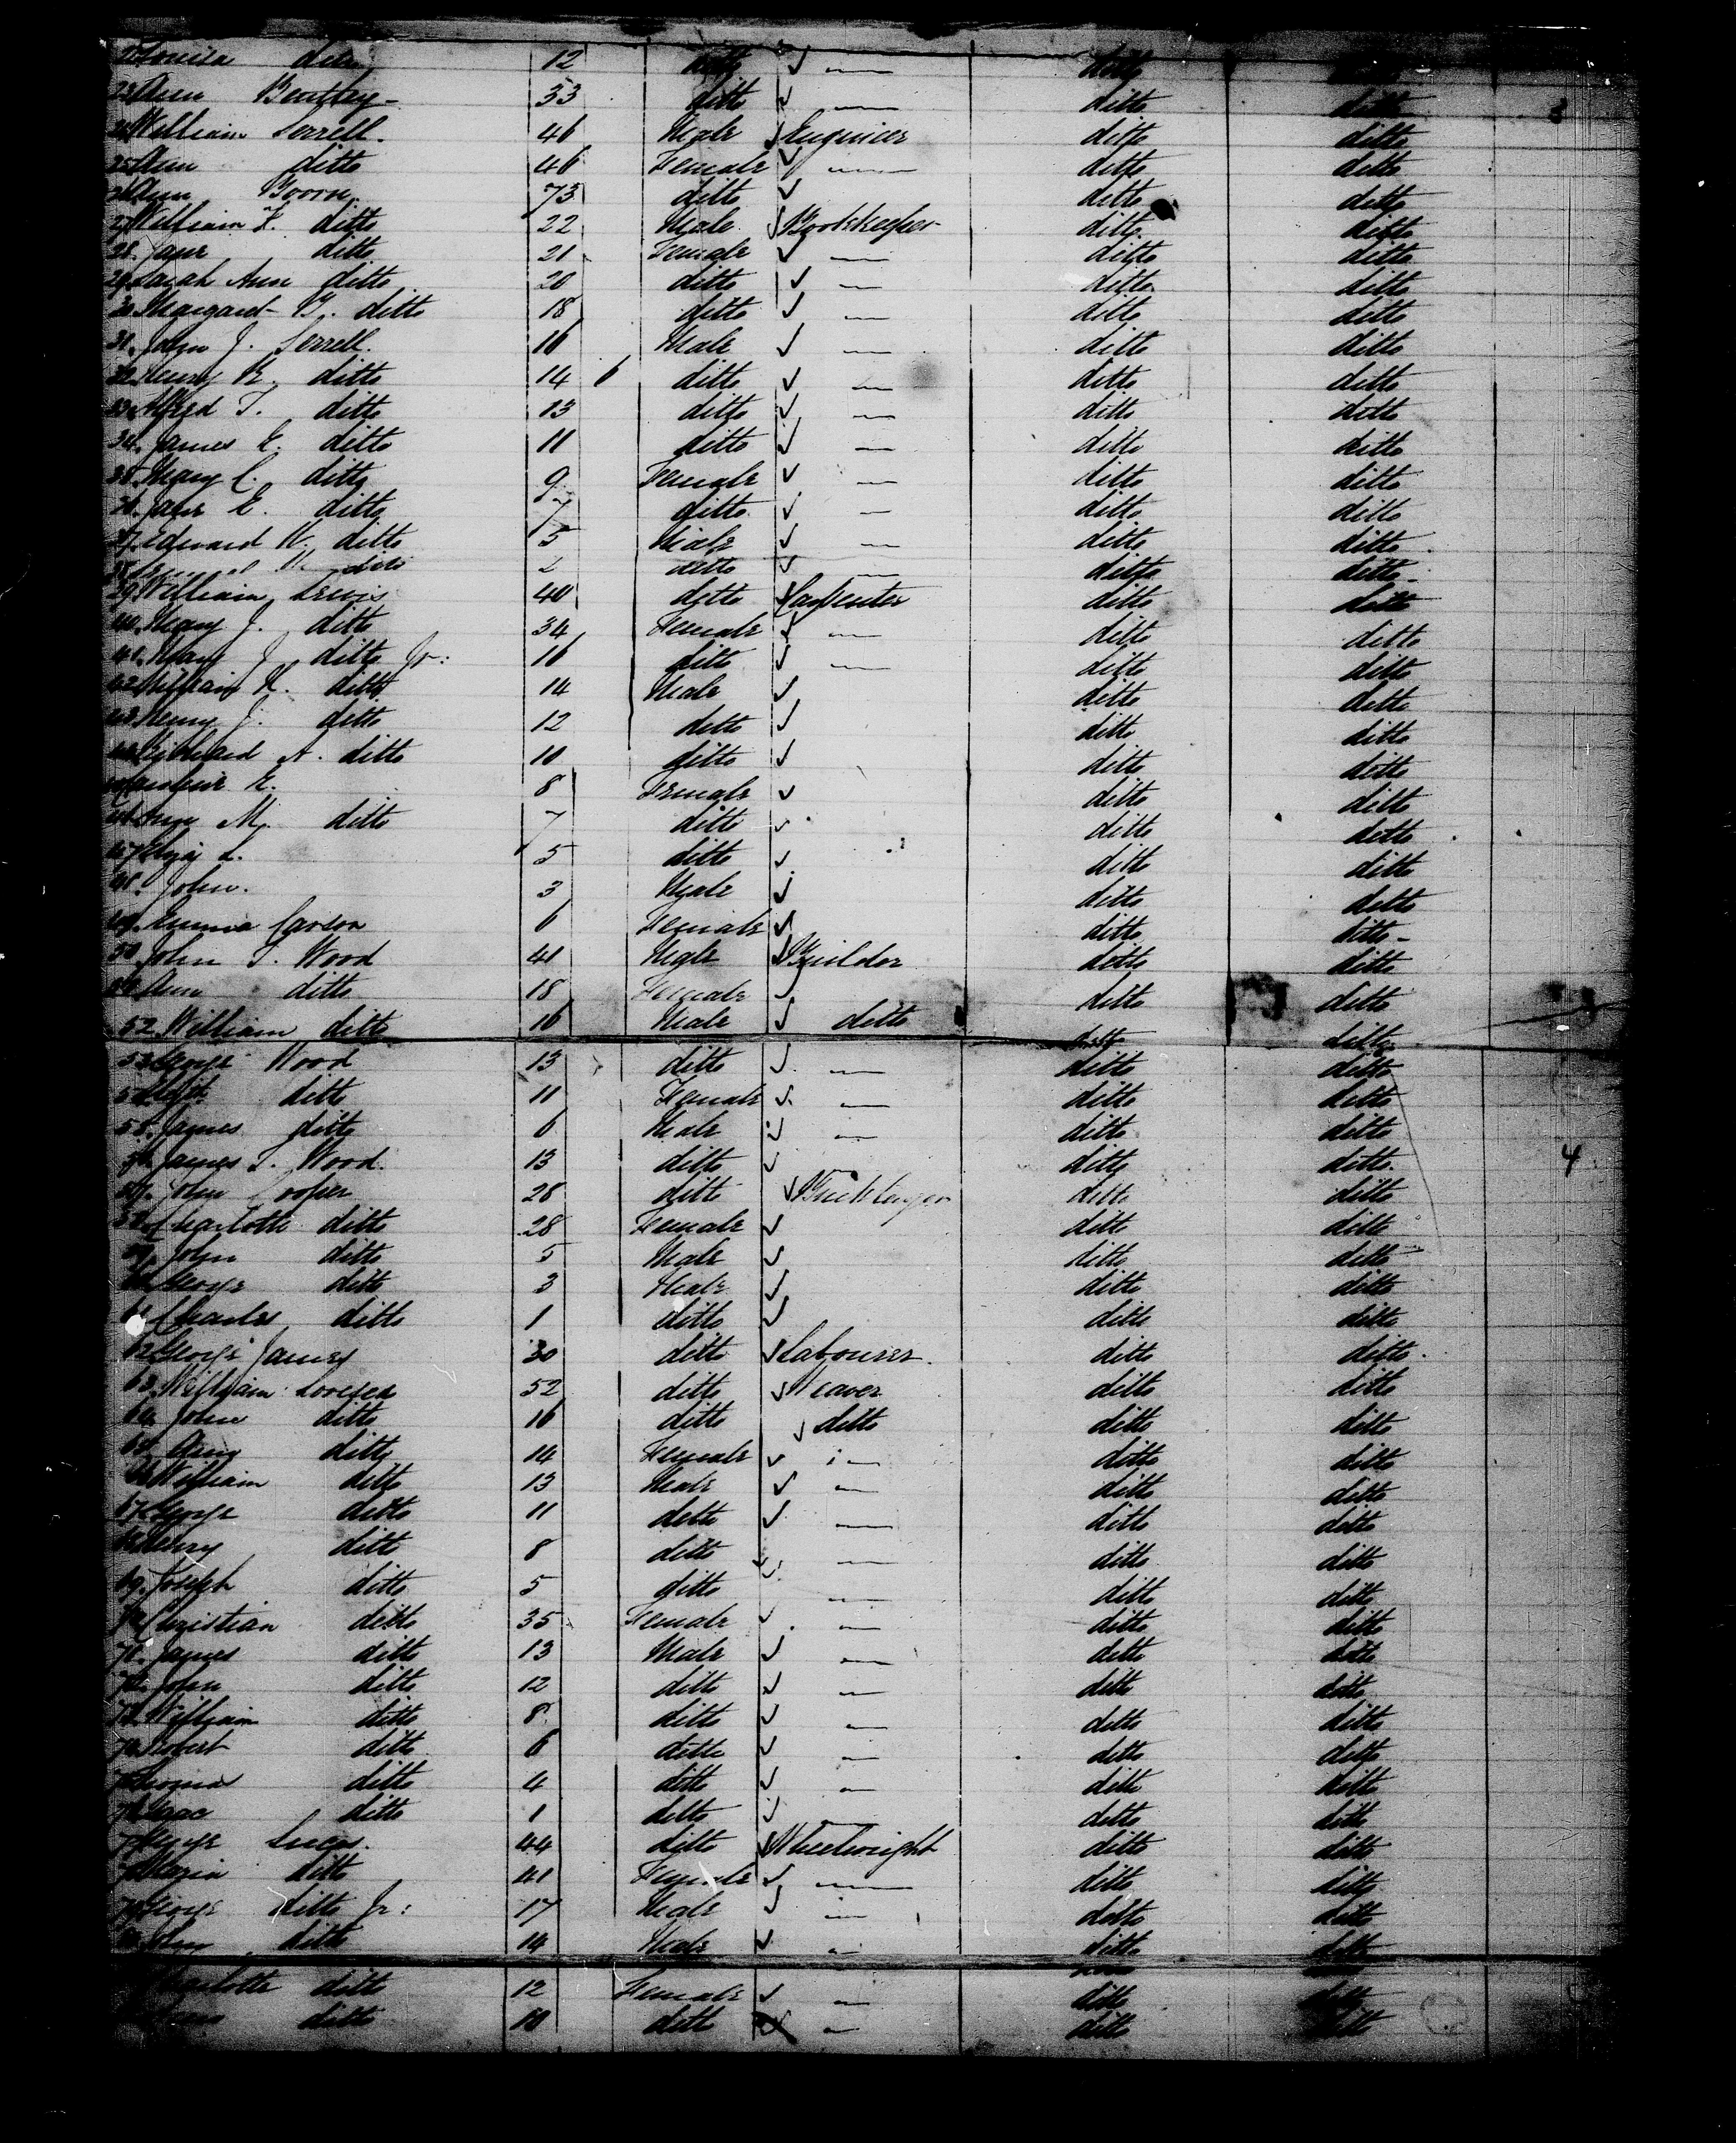 Louisa ditto 12 ditto ✓ — ditto ditto
23 Ann Bentley 33 ditto ✓ — ditto ditto 3
24 William Serrell 46 Male ✓ Engineer ditto ditto
25 Ann ditto 46 Female ✓ — ditto ditto
26 Ann Boorn 73 ditto ✓ ditto ditto
27 William ditto 22 Male ✓ Bookkeeper ditto ditto
28 Jane ditto 21 Female ✓ — ditto ditto
29 Sarah Ann ditto 20 ditto ✓ — ditto ditto
30 Margaret ditto 18 ditto ✓ — ditto ditto
31 John J. Serrell 16 Male ✓ — ditto ditto
32 Henry ditto 14 6 ditto ✓ — ditto ditto
33 Alfred T. ditto 13 ditto ✓ — ditto ditto
34. James E. ditto 11 ditto ✓ — ditto ditto
35 Mary C. ditto 9 Female ✓ — ditto ditto
36. Jane E. ditto 7 ditto ✓ — ditto ditto
37. Edward W. ditto 5 Male ✓ — ditto ditto
38 ditto 2 ditto ✓ — ditto ditto
39 William Lewis 40 ditto ✓ Carpenter ditto ditto
40. Mary J. ditto 34 Female ✓ — ditto ditto
41. Mary J ditto Jr: 16 ditto ✓ — ditto ditto
42 William ditto 14 Male ✓ ditto ditto
43 Henry J. ditto 12 ditto ✓ ditto ditto
44 Richard A. ditto 10 ditto ✓ ditto ditto
45 E. 8 Female ✓ ditto ditto
46 Ann M. ditto 7 ditto ✓ ditto ditto
47 Eliza L. 5 ditto ✓ ditto ditto
48. John. 3 Male ✓ ditto ditto
49. Emma Carson 6 Female ✓ ditto ditto
50 John T. Wood 41 Male ✓ Builder ditto ditto
51 Ann ditto 18 Female ✓ ditto ditto
52 William ditto 16 Male ✓ ditto ditto ditto
53 George Wood 13 ditto ✓ — ditto ditto
54 ditto 11 Female ✓ — ditto ditto
55. James ditto 6 Male ✓ — ditto ditto
56. James T. Wood. 13 ditto ✓ ditto ditto 4
57. John Cooper 28 ditto ✓ Bricklayer ditto ditto
58 Charlotte ditto 28 Female ✓ ditto ditto
59. John ditto 5 Male ✓ ditto ditto
60 George ditto 3 Male ✓ ditto ditto
61 Charles ditto 1 ditto ✓ ditto ditto
62 George James 30 ditto ✓ Labourer. ditto ditto
63 William 52 ditto ✓ Weaver ditto ditto
64. John ditto 16 ditto ✓ ditto ditto ditto
65 ditto 14 Female ✓ — ditto ditto
66 William ditto 13 Male ✓ — ditto ditto
67 George ditto 11 ditto ✓ — ditto ditto
68 Henry ditto 8 ditto ✓ — ditto ditto
69. Joseph ditto 5 ditto ✓ — ditto ditto
70 Christian ditto 35 Female ✓ — ditto ditto
71. James ditto 13 Male ✓ — ditto ditto
72. John ditto 12 ditto ✓ — ditto ditto
73 William ditto 8 ditto ✓ — ditto ditto
74 Robert ditto 6 ditto ✓ — ditto ditto
75 ditto 4 ditto ✓ — ditto ditto
76 Isaac ditto 1 ditto ✓ — ditto ditto
77 George Lucas. 44 ditto ✓ Wheelwright ditto ditto
78 Maria ditto 41 Female ✓ — ditto ditto
79 George ditto Jr: 17 Male ✓ — ditto ditto
ditto 14 Male ✓ — ditto ditto
Charlotte ditto 12 Female ✓ — ditto ditto
ditto 10 ditto ✓ — ditto ditto